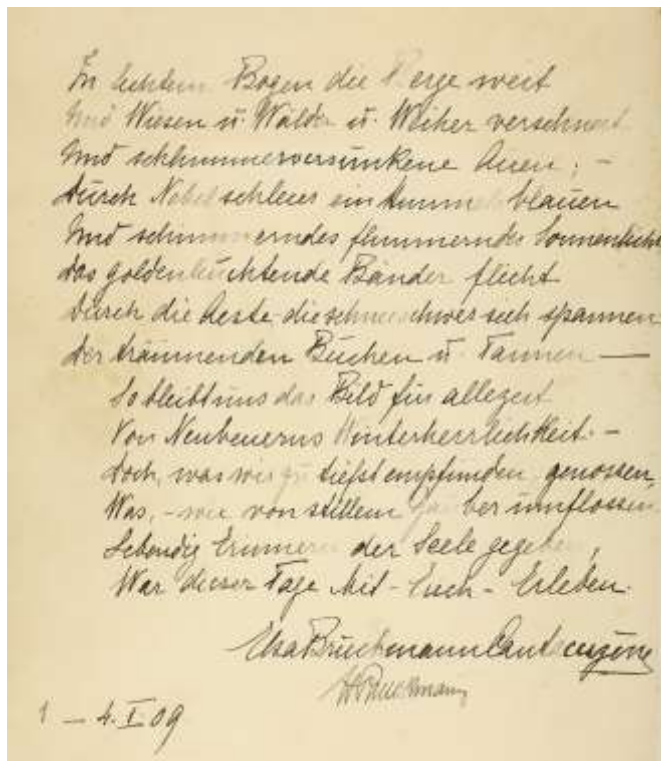 In lichtem Bogen die Berge weit
Und Wiesen u. Wälder u. Weiher verschneit
Und schlummerversunkene Auen; –
Durch Nebelschleier ein Himmelblauen
Und schimmerndes flimmerndes Sonnenlicht
das goldenleuchtende Bänder flicht
Durch die Aeste die schneeschwer sich spannen
der träumenden Buchen u. Tannen —
So bleibt uns das Bild für allezeit
Von Neubeuerns Winterherrlichkeit. –
Doch, was wir zu tiefst empfunden, genossen,
Was, – wie von stillem Zauber umflossen
Lebendig Erinnern der Seele gegeben,
War dieser Tage Mit – Euch – Erleben.
Elsa Bruckmann Cantacuzène
H Bruckmann
1 – 4. I. 09